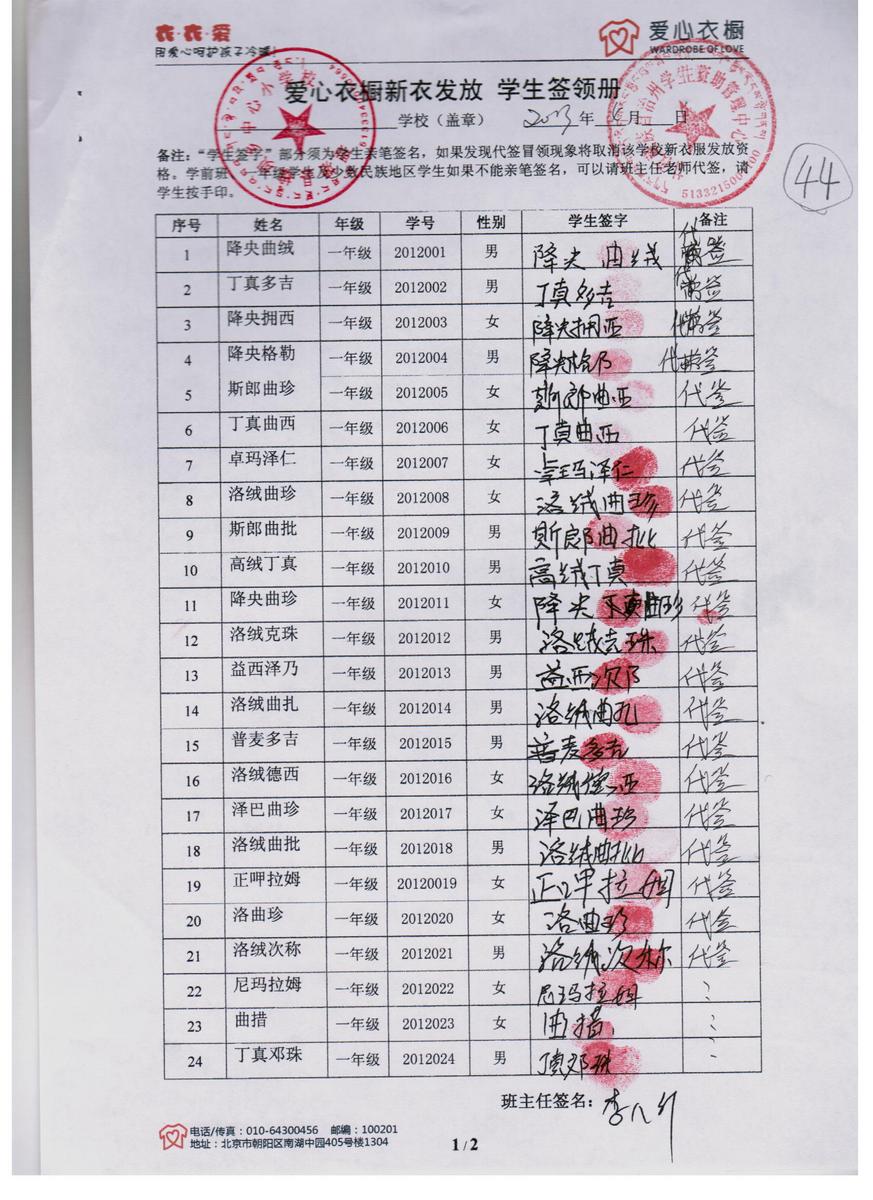 衣·衣·爱
用爱心呵护孩子冷暖！
爱心衣橱
WARDROBE OF LOVE
爱心衣橱新衣发放 学生签领册
学校（盖章） 2013 年 月 日
5133215000400
44
备注："学生签字"部分须为学生亲笔签名，如果发现代签冒领现象将取消该学校新衣服发放资
格。学前班、一年级学生及少数民族地区学生如果不能亲笔签名，可以请班主任老师代签，请
学生按手印。
序号 姓名 年级 学号 性别 学生签字 备注
1 降央曲绒 一年级 2012001 男 降央曲绒 代签
2 丁真多吉 一年级 2012002 男 丁真多吉 代签
3 降央拥西 一年级 2012003 女 降央拥西 代签
4 降央格勒 一年级 2012004 男 降央格乃 代签
5 斯郎曲珍 一年级 2012005 女 斯郎曲西 代签
6 丁真曲西 一年级 2012006 女 丁真曲西 代签
7 卓玛泽仁 一年级 2012007 女 卓玛泽仁 代签
8 洛绒曲珍 一年级 2012008 女 洛绒曲珍 代签
9 斯郎曲批 一年级 2012009 男 斯郎曲批 代签
10 高绒丁真 一年级 2012010 男 高绒丁真 代签
11 降央曲珍 一年级 2012011 女 降央曲珍 代签
12 洛绒克珠 一年级 2012012 男 洛绒克珠 代签
13 益西泽乃 一年级 2012013 男 益西次乃 代签
14 洛绒曲扎 一年级 2012014 男 洛绒曲扎 代签
15 普麦多吉 一年级 2012015 男 普麦多吉 代签
16 洛绒德西 一年级 2012016 女 洛绒德西 代签
17 泽巴曲珍 一年级 2012017 女 泽巴曲珍 代签
18 洛绒曲批 一年级 2012018 男 洛绒曲批 代签
19 正呷拉姆 一年级 20120019 女 正呷拉姆 代签
20 洛曲珍 一年级 2012020 女 洛曲珍 代签
21 洛绒次称 一年级 2012021 男 洛绒次称 代签
22 尼玛拉姆 一年级 2012022 女 尼玛拉姆
23 曲措 一年级 2012023 女 曲措
24 丁真邓珠 一年级 2012024 男 丁真邓珠
班主任签名：
电话/传真：010-64300456 邮编：100201
地址：北京市朝阳区南湖中园405号楼1304
1 / 2